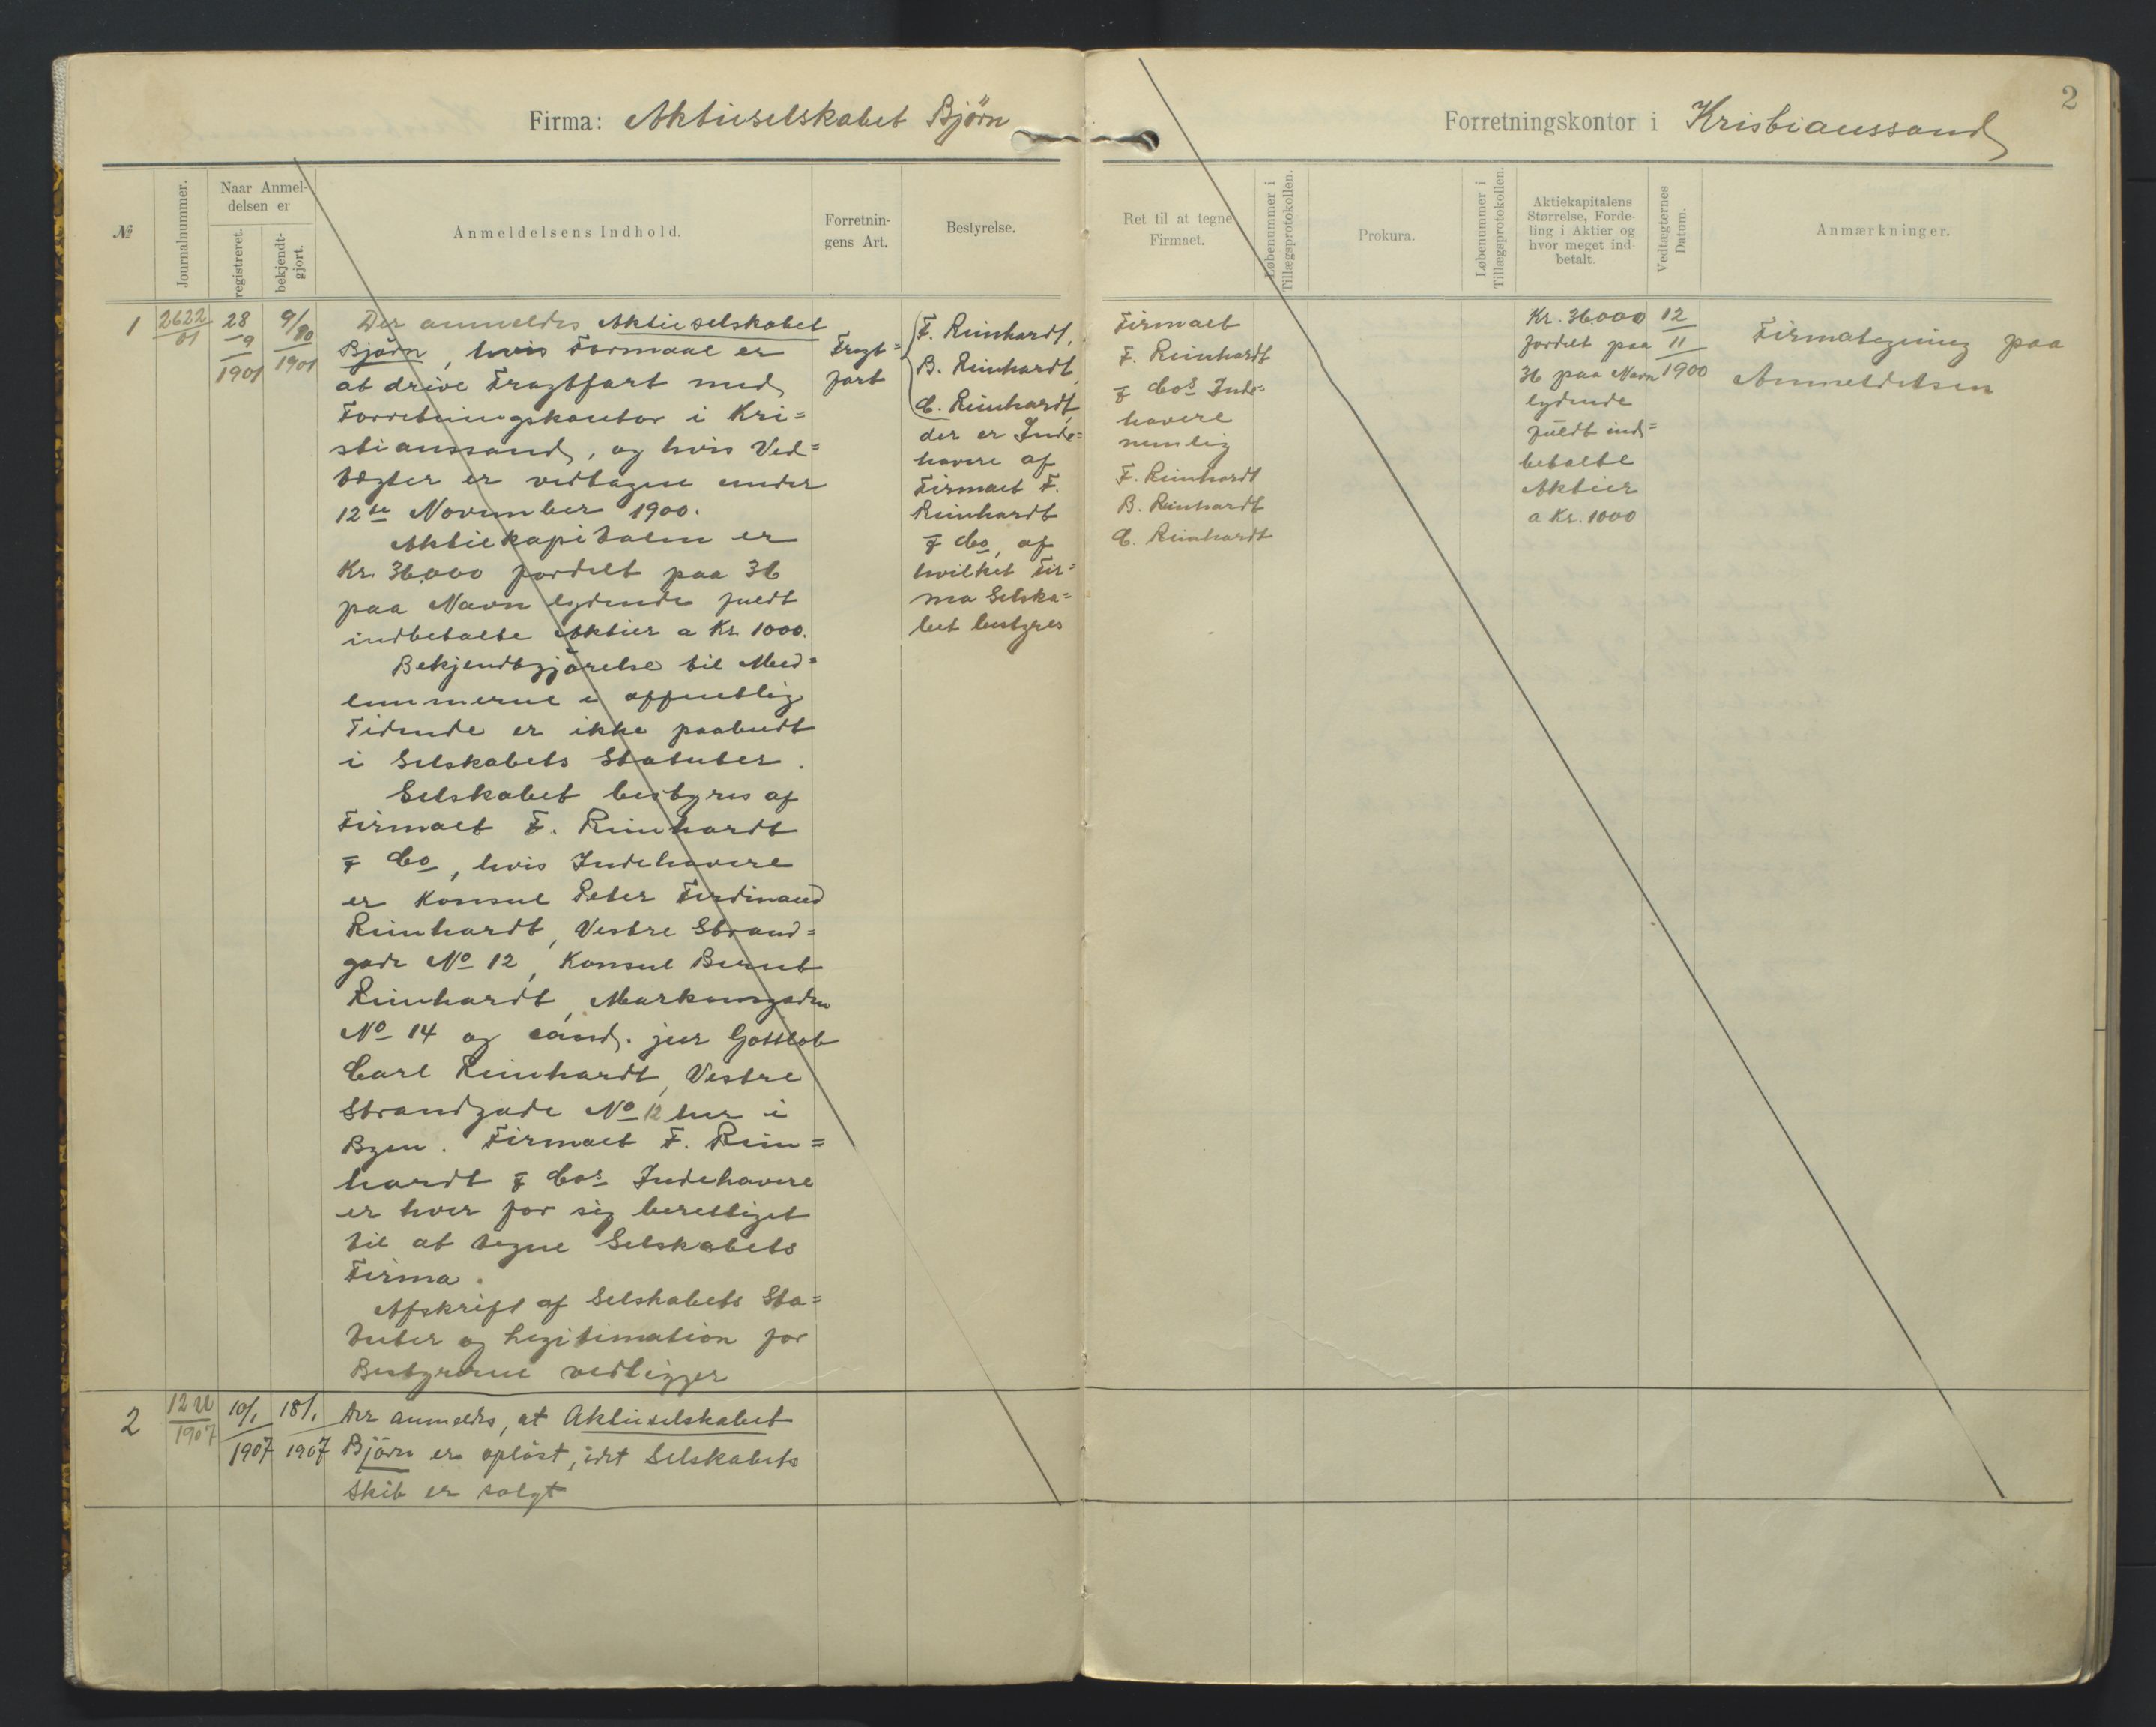 2
Firma: Aktieselskabet Björn
Forretningskontor i Kristianssand
№
Journalnummer.
Naar Anmel-
delsen er
registreret.
bekjendt-
gjort.
Anmeldelsens Indhold.
Forretnin-
gens Art.
Bestyrelse.
Ret til at tegne
Firmaet.
Løbenummer i
Tillægsprotokollen.
Prokura.
Løbenummer i
Tillægsprotokollen.
Aktiekapitalens
Størrelse, Forde-
ling i Aktier og
hvor meget ind-
betalt.
Vedtægternes
Datum.
Anmærkninger.
1
2622
01
28
9
1901
9/10
1901
Der anmeldes Aktieselskabet
Björn, hvis Formaal er
at drive Fragtfart med
Forretningskontor i Kri=
stianssand, og hvis Ved=
tægter er vedtagne under
12te November 1900.
Aktiekapitalen er
Kr. 36.000 fordelt paa 36
paa Navn lydende fuldt
indbetalte Aktier a Kr. 1000.
Bekjendtgjörelse til Med=
lemmerne i offentlig
Tidende er ikke paabudt
i Selskabets Statuter.
Selskabet bestyres af
Firmaet F. Reinhardt
& Co, hvis Indehavere
er Konsul Peter Ferdinand
Reinhardt, Vestre Strand=
gade No 12, Konsul Bernt
Reinhardt, Markensgaden
No 14 og cand. jur Gottlob
Carl Reinhardt, Vestre
Strandgade No 12 her i
Byen. Firmaet F. Rein=
hardt & Cos Indehavere
er hver for sig berettiget
til at tegne Selskabets
Firma.
Afskrift af Selskabets Sta=
tuter og Legitimation for
Bestyrerne vedligger
Fragt=
fart
F. Reinhardt,
B. Reinhardt,
C. Reinhardt,
der er Inde=
havere af
Firmaet F.
Reinhardt
& Co, af
hvilket Fir=
ma Selska=
bet bestyres
Firmaet
F. Reinhardt
& Cos Inde=
havere
nemlig
F. Reinhardt
B. Reinhardt
C. Reinhardt
Kr. 36.000
fordelt paa
36 paa Navn
lydende
fuldt ind=
betalte
Aktier
a Kr. 1000
12
11
1900
Firmategning paa
Anmeldelsen
2
1907
10/1
1907
18/1
1907
Der anmeldes, at Aktieselskabet
Björn er oplöst, idet Selskabets
Skib er solgt